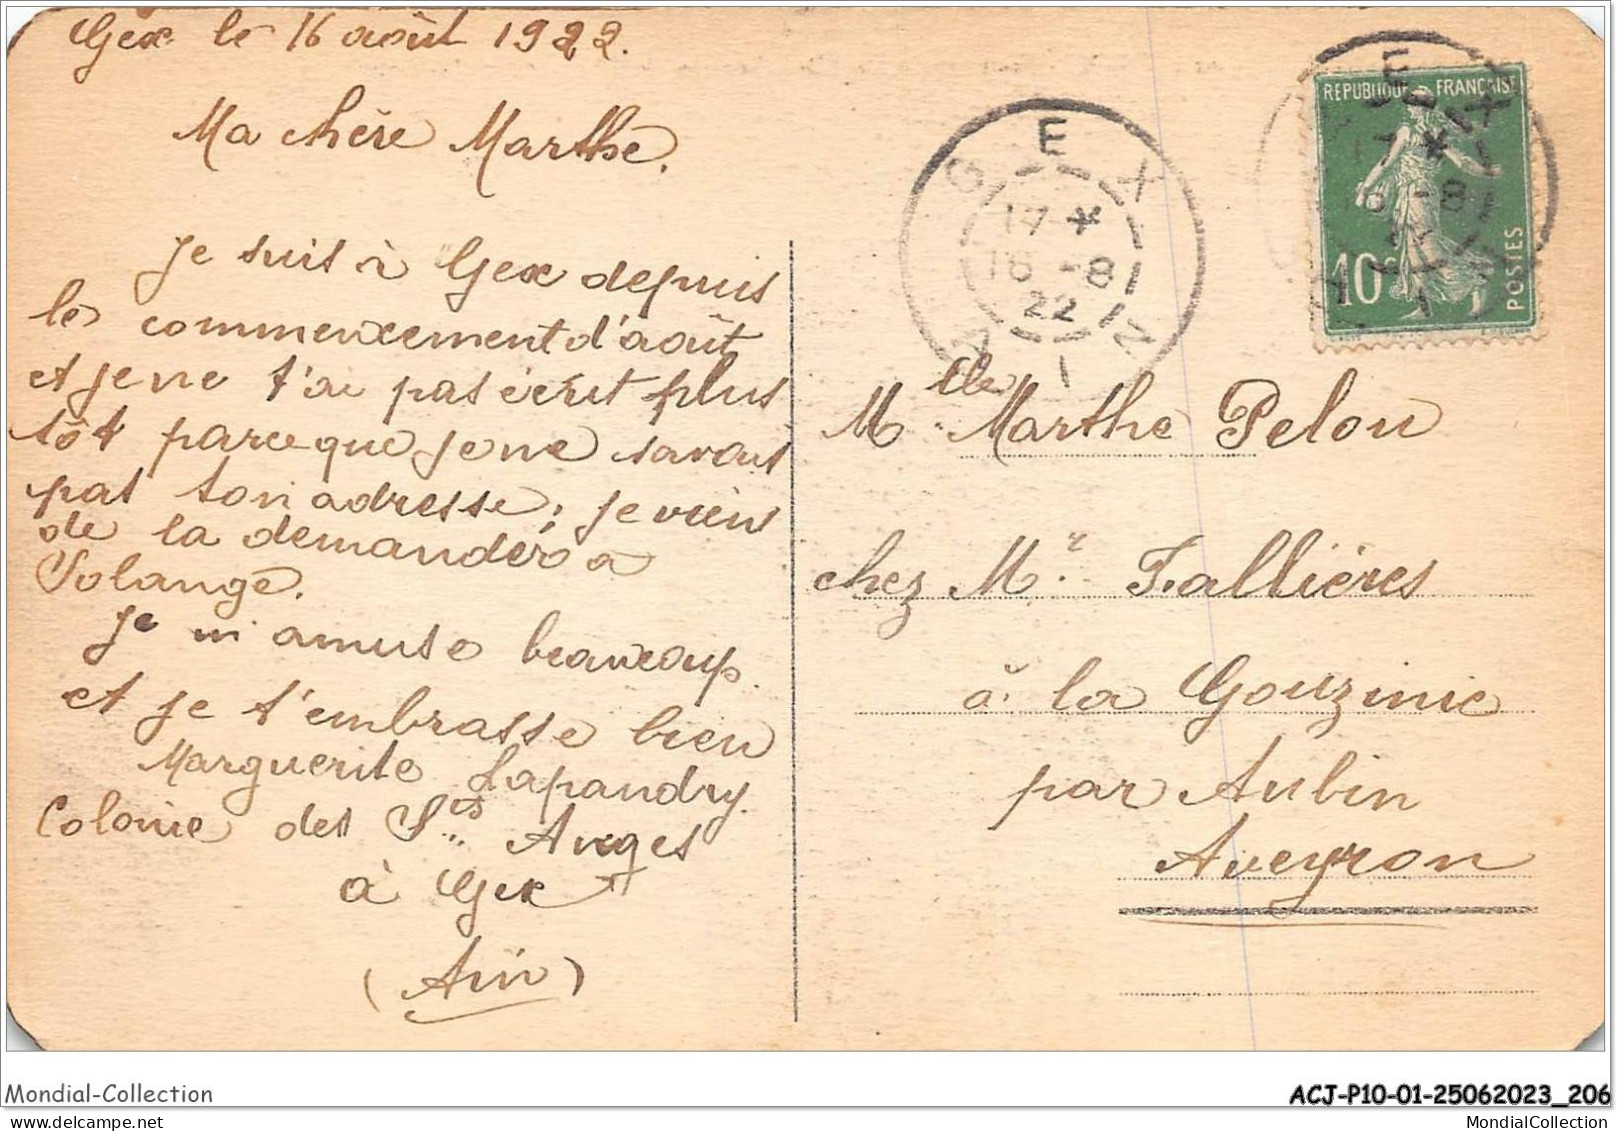 Gex le 16 août 1922.
Ma chère Marthe.
Je suis à Gex depuis
le commencement d'août
et je ne t'ai pas écrit plus
tôt parce que je ne savais
pas ton adresse; je viens
de la demander à
Solange.
Je m'amuse beaucoup
et je t'embrasse bien
Marguerite Lapandry.
Colonie des Sts Anges
à Gex
(Ain)
GEX
17 *
16 -8
22
AIN
REPUBLIQUE FRANÇAISE
10c
POSTES
Mlle Marthe Pelou
chez Mr. Fallières
à la Gouzinie
par Aubin
Aveyron
Mondial-Collection
ACJ-P10-01-25062023_206
MondialCollection